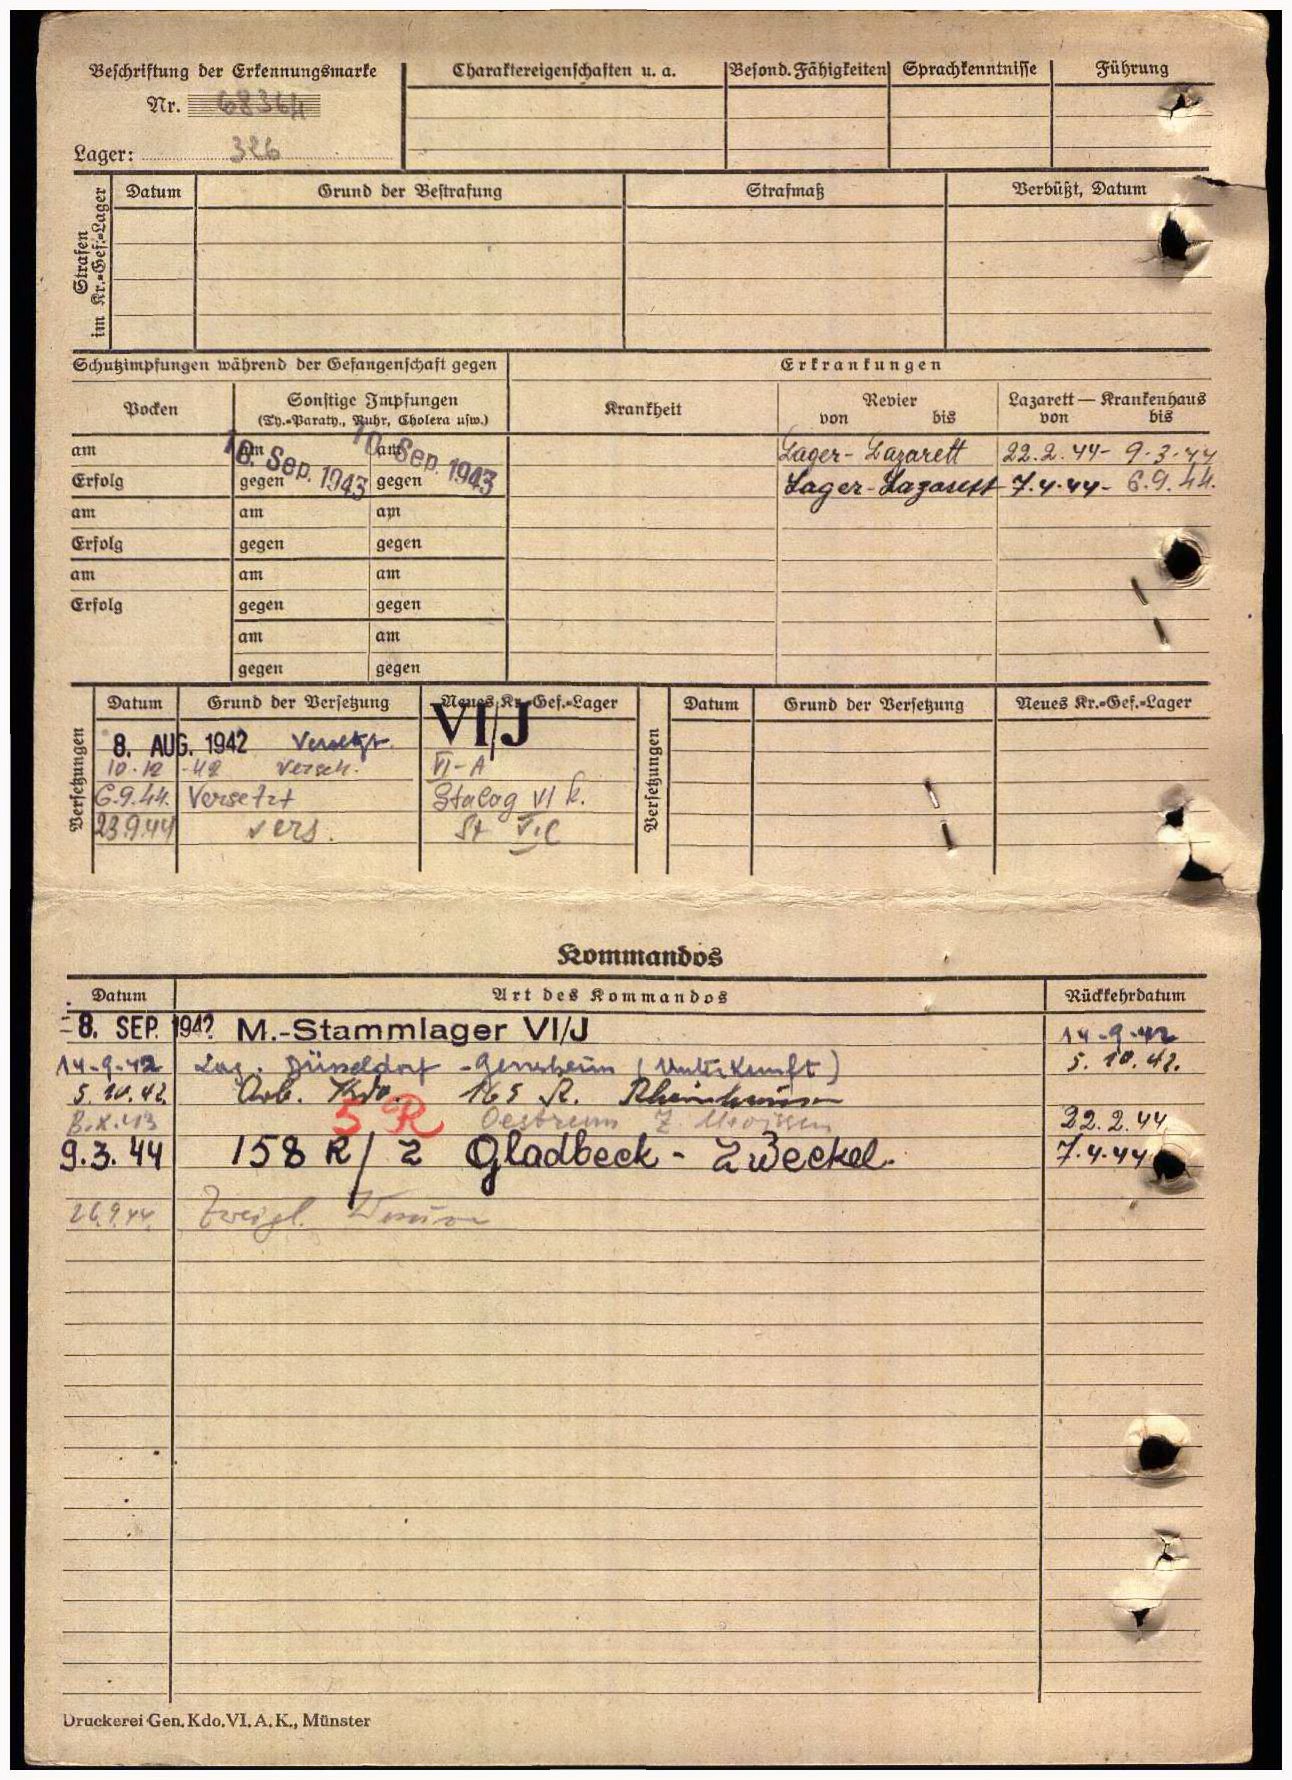 Beschriftung der Erkennungsmarke
Nr. 68364
Lager: 326
Charaktereigenschaften u. a.
Besond. Fähigkeiten
Sprachkenntnisse
Führung
Strafen im Kr.=Gef.=Lager
Datum
Grund der Bestrafung
Strafmaß
Verbüßt, Datum
Schutzimpfungen während der Gefangenschaft gegen
Erkrankungen
Pocken
Sonstige Impfungen
(Ty.=Paraty., Ruhr, Cholera usw.)
Krankheit
Revier
von bis
Lazarett — Krankenhaus
von bis
am am am
10. Sep. 1943 10. Sep. 1943
Lager-Lazarett 22.2.44- 9.3.44
Erfolg gegen gegen
Lager-Lazarett 7.4.44- 6.9.44.
am am am
Erfolg gegen gegen
am am am
Erfolg gegen gegen
am am
gegen gegen
Versetzungen
Datum Grund der Versetzung Neues Kr.=Gef.=Lager
8. AUG. 1942 Versetzt. VI/J
10.12.42 versch. VI-A
6.9.44. Versetzt Stalag VI k.
23.9.44 vers. St VI C
Versetzungen
Datum Grund der Versetzung Neues Kr.=Gef.=Lager
Kommandos
Datum Art des Kommandos Rückkehrdatum
-8. SEP. 1942 M.-Stammlager VI/J 14-9-42
14-9-42 Lag. Düsseldorf - (Unterkunft) 5.10.42.
5.10.42. Arb. Kdo. 165 R. Rheinhausen
5 R 22.2.44
9.3.44 158 R/2 Gladbeck - Zweckel. 7.4.44
26.9.44. Zweigl.
Druckerei Gen. Kdo. VI. A. K., Münster